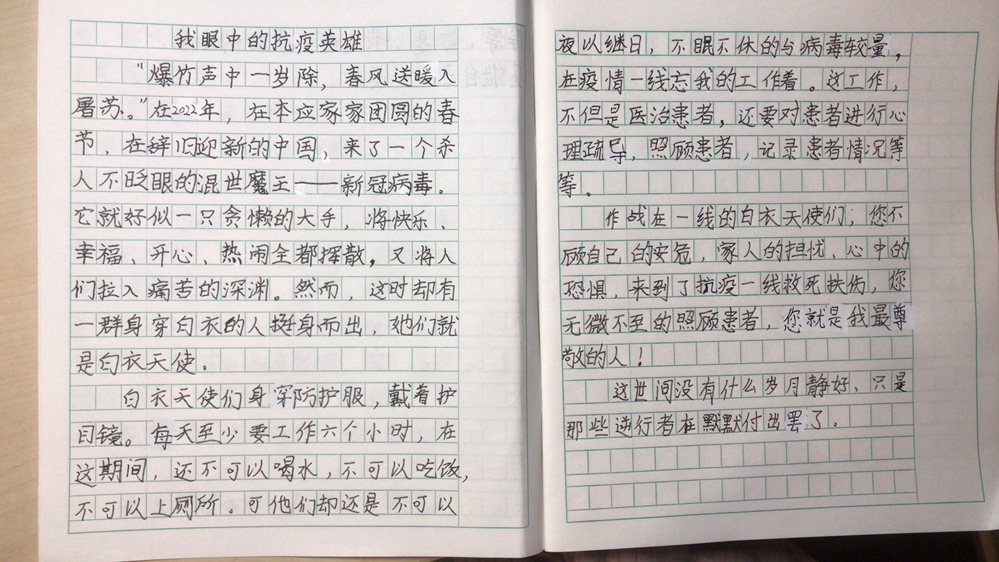 我眼中的抗疫英雄
“爆竹声中一岁除，春风送暖入
屠苏。”在2022年，在本应家家团圆的春
节，在辞旧迎新的中国，来了一个杀
人不眨眼的混世魔王——新冠病毒。
它就好似一只贪懒的大手，将快乐、
幸福、开心、热闹全都挥散，又将人
们拉入痛苦的深渊。然而，这时却有
一群身穿白衣的人挺身而出，他们就
是白衣天使。
白衣天使们身穿防护服，戴着护
目镜。每天至少要工作六个小时，在
这期间，还不可以喝水，不可以吃饭，
不可以上厕所。可他们却还是不可以
夜以继日，不眠不休的与病毒较量，
在疫情一线忘我的工作着。这工作，
不但是医治患者，还要对患者进行心
理疏导，照顾患者，记录患者情况等
等。
作战在一线的白衣天使们，您不
顾自己的安危，家人的担忧、心中的
恐惧，来到了抗疫一线救死扶伤，您
无微不至的照顾患者，您就是我最尊
敬的人！
这世间没有什么岁月静好，只是
那些逆行者在默默付出罢了。